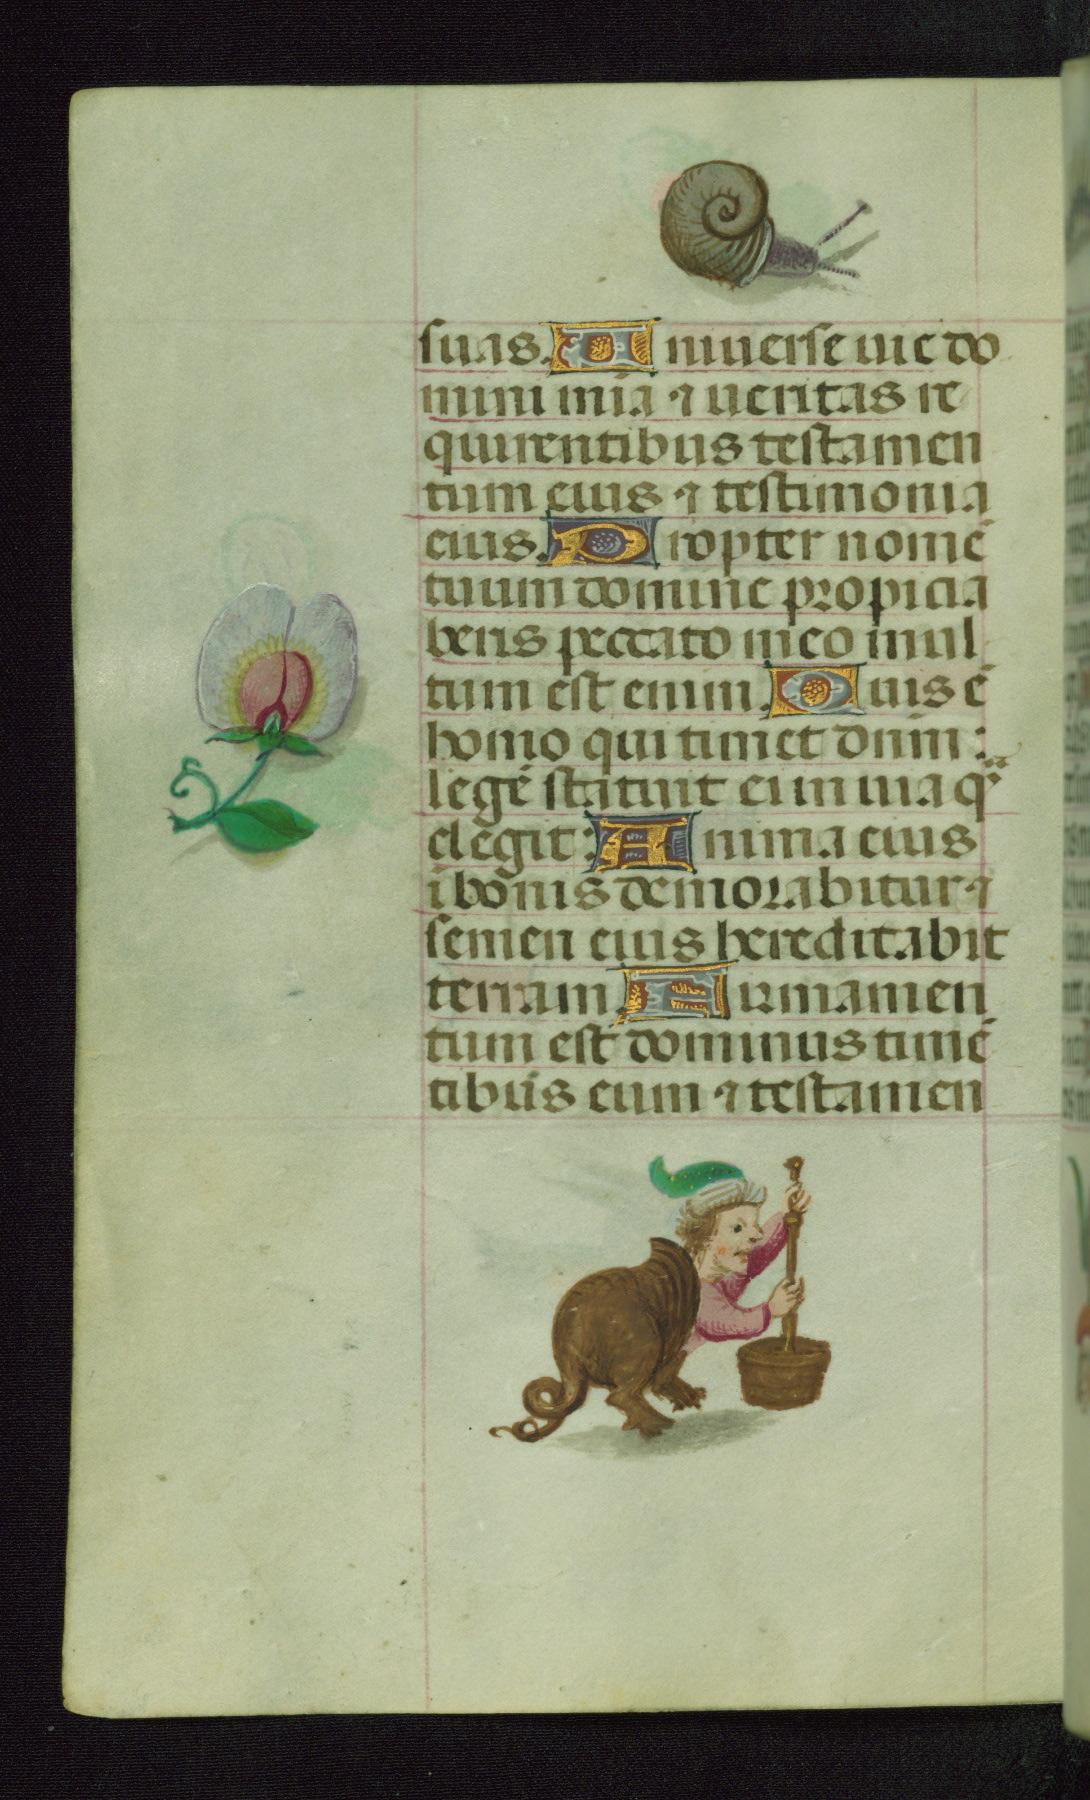 suas. Uniuerse uie do
mini mīa ⁊ ueritas re
quirentibus testamen
tum eius ⁊ testimonia
eius. Propter nomē
tuum domine propicia
beris peccato meo mul
tum est enim. Quis ē
homo qui timet dnm̄:
legē statuit ei in uia qᵃ
elegit: Anima eius
ī bonis demorabitur ⁊
semen eius hereditabit
terram. Firmamen
tum est dominus timē
tibus eum ⁊ testamen